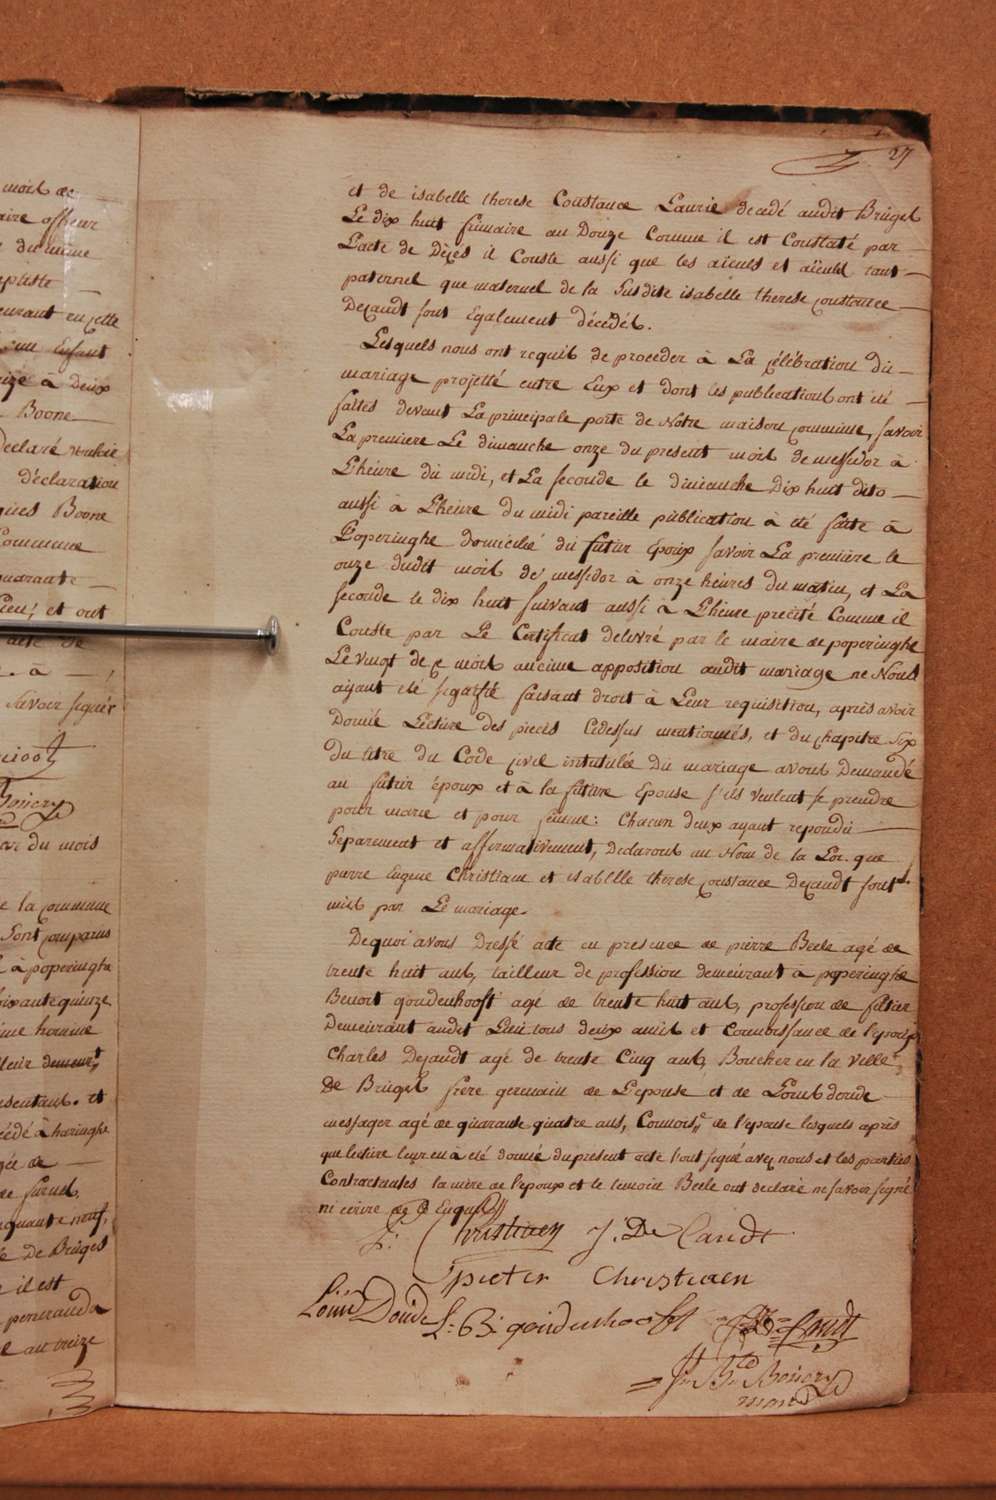 mois de
aire officier
du même
aptiste
eurant en cette
un Enfant
eize à Deux
Boone
declaré vouloir
déclaration
ques Boone
Commune
quarante
Lieu, et ont
acte de
à
Savoir signer
la commune
Sont comparus
à poperinghe
soixante quinze
me homme
leur demeurt
sentans. et
cédé à haringhe
gée de
de
quante neuf,
de Bruges
il est
an treize
27
et de isabelle therese Constance Laurie decedé audit Brugel
Le dix huit frimaire an Douze Comme il est Constaté par
L'acte de Décés il Conste aussi que les aïeuls et aïeuls tant
paternel que maternel de la Susdite isabelle therese constance
Decandt sont Egalement décédés.
Lesquels nous ont requis de proceder à La célébration du
mariage projetté entre Eux et dont les publications ont été
faites devant La principale porte de Notre maison commune, savoir
La premiere Le dimanche onze du present mois de messidor à
L'heure du midi, et La seconde le dimanche Dix huit dito
aussi à L'heure du midi pareille publication à été faite à
Poperinghe domicilié du futur époux savoir La premiere le
onze dudit mois de messidor à onze heures du matin, et La
seconde le dix huit suivant aussi à L'heure precité Comme il
Conste par Le Certificat delivré par le maire de poperinghe
Le vingt de ce mois aucune opposition audit mariage ne Nous
ayant été signifié faisant droit à Leur requisition, après avoir
Donné Lecture des pieces Cidessus mentionnés, et du chapitre Six
du titre du Code civil intitulée Du mariage avons Demandé
au futur époux et à la future Epouse s'ils veulent se prendre
pour marie et pour femme: Chacun deux ayant repondu
Separement et affirmativement, Declarons au Nom de la Loi que
pierre Eugene Christiaen et isabelle therese constance Decandt sont
unis par Le mariage.
De quoi avons Dressé acte en presence de pierre Beele agé de
trente huit ans, tailleur de profession demeurant à poperinghe
Benoit goudenhooft agé de trente huit ans, profession de
Demeurant audit Lieu tous deux amis et Connoissance de l'epoux
Charles Decandt agé de trente Cinq ans, Boucher en la Ville
de Brugel frère germain de L'epouse et de Louis donde
messager agé de quarante quatre ans, Connoisce de l'epouse lesquels après
que lecture leur en à été donné du present acte l'ont signé avec nous et les parties
Contractantes la mère de l'epoux et le temoin Beele ont declaré ne savoir signé
ni ecrire de ce Enquis
Christiaen J. De Candt
pieter Christiaen
Louis Donde L: B: goudenhooft Candt
Bouery
maire